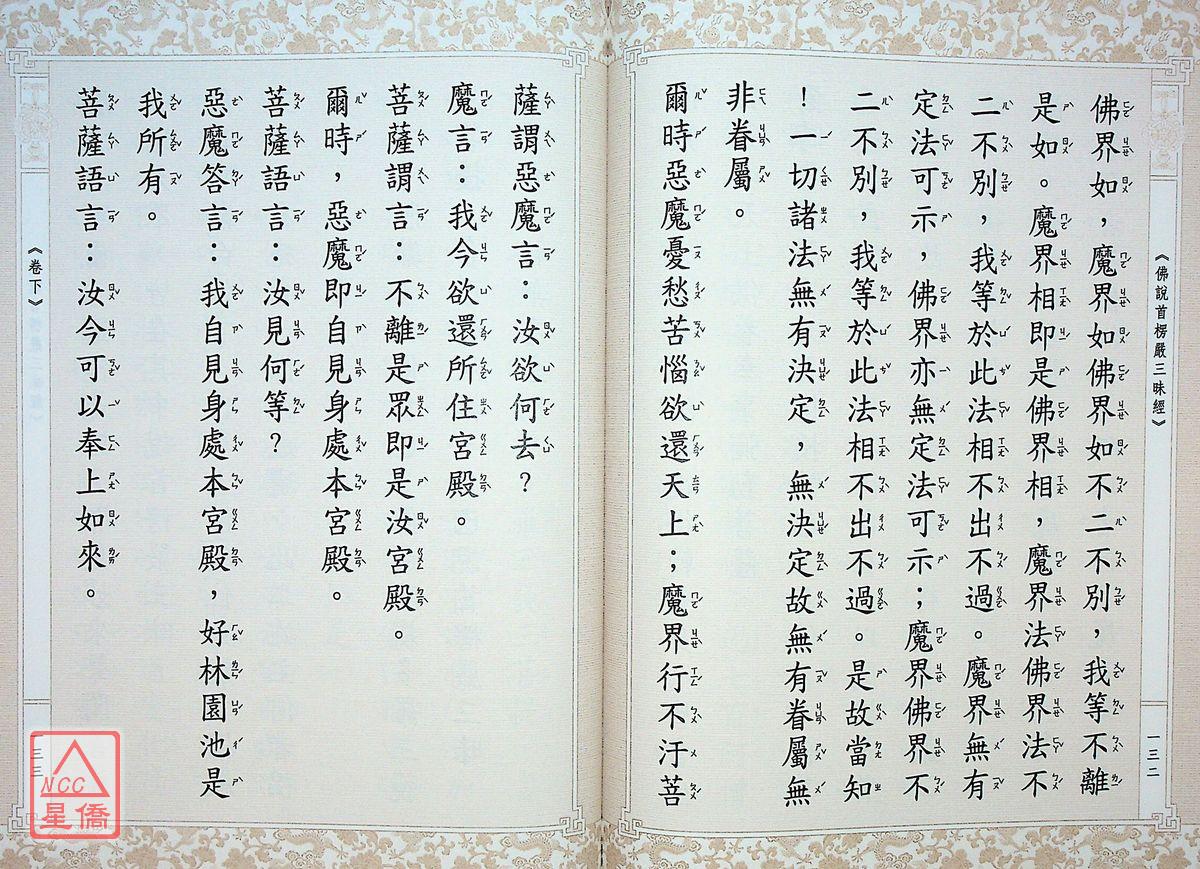 《佛說首楞嚴三昧經》
一三二
佛界如，魔界如佛界如不二不別，我等不離
是如。魔界相即是佛界相，魔界法佛界法不
二不別，我等於此法相不出不過。魔界無有
定法可示，佛界亦無定法可示；魔界佛界不
二不別，我等於此法相不出不過。是故當知
！一切諸法無有決定，無決定故無有眷屬無
非眷屬。
爾時惡魔憂愁苦惱欲還天上；魔界行不汙菩
薩謂惡魔言：汝欲何去？
魔言：我今欲還所住宮殿。
菩薩謂言：不離是眾即是汝宮殿。
爾時，惡魔即自見身處本宮殿。
菩薩語言：汝見何等？
惡魔答言：我自見身處本宮殿，好林園池是
我所有。
菩薩語言：汝今可以奉上如來。
《卷下》
一三三
NCC
星僑